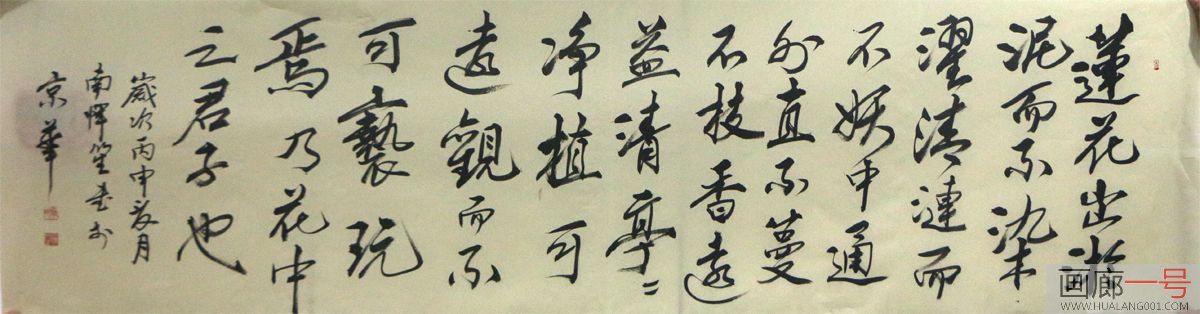 蓮花出淤
泥而不染
濯清漣而
不妖中通
外直不蔓
不枝香遠
益清亭〻
净植可
遠觀而不
可褻玩
焉乃花中
之君子也
歲次丙申夏月
南惲笙書於
京華
画廊一号
WWW.HUALANG001.COM